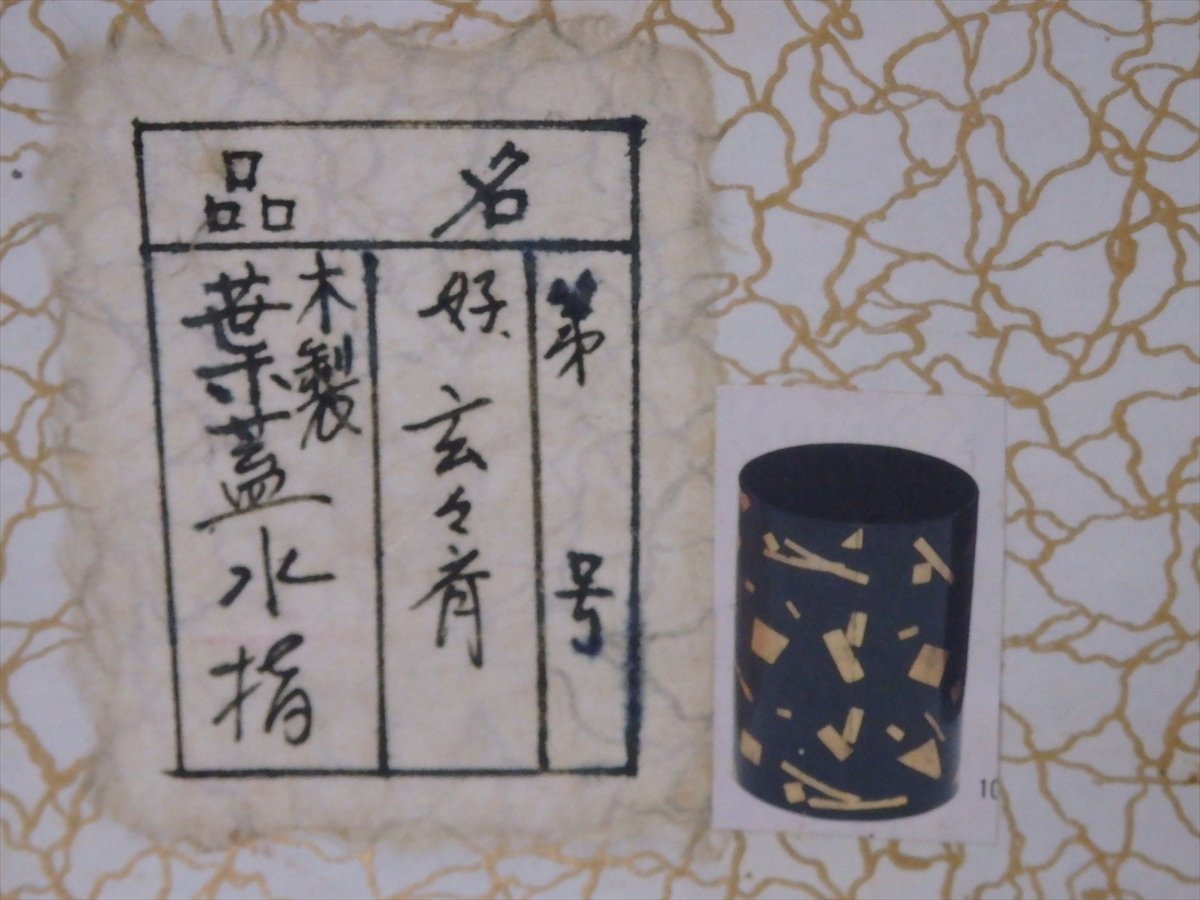 品名
第 号
好 玄々斎
木製
葉蓋水指
10